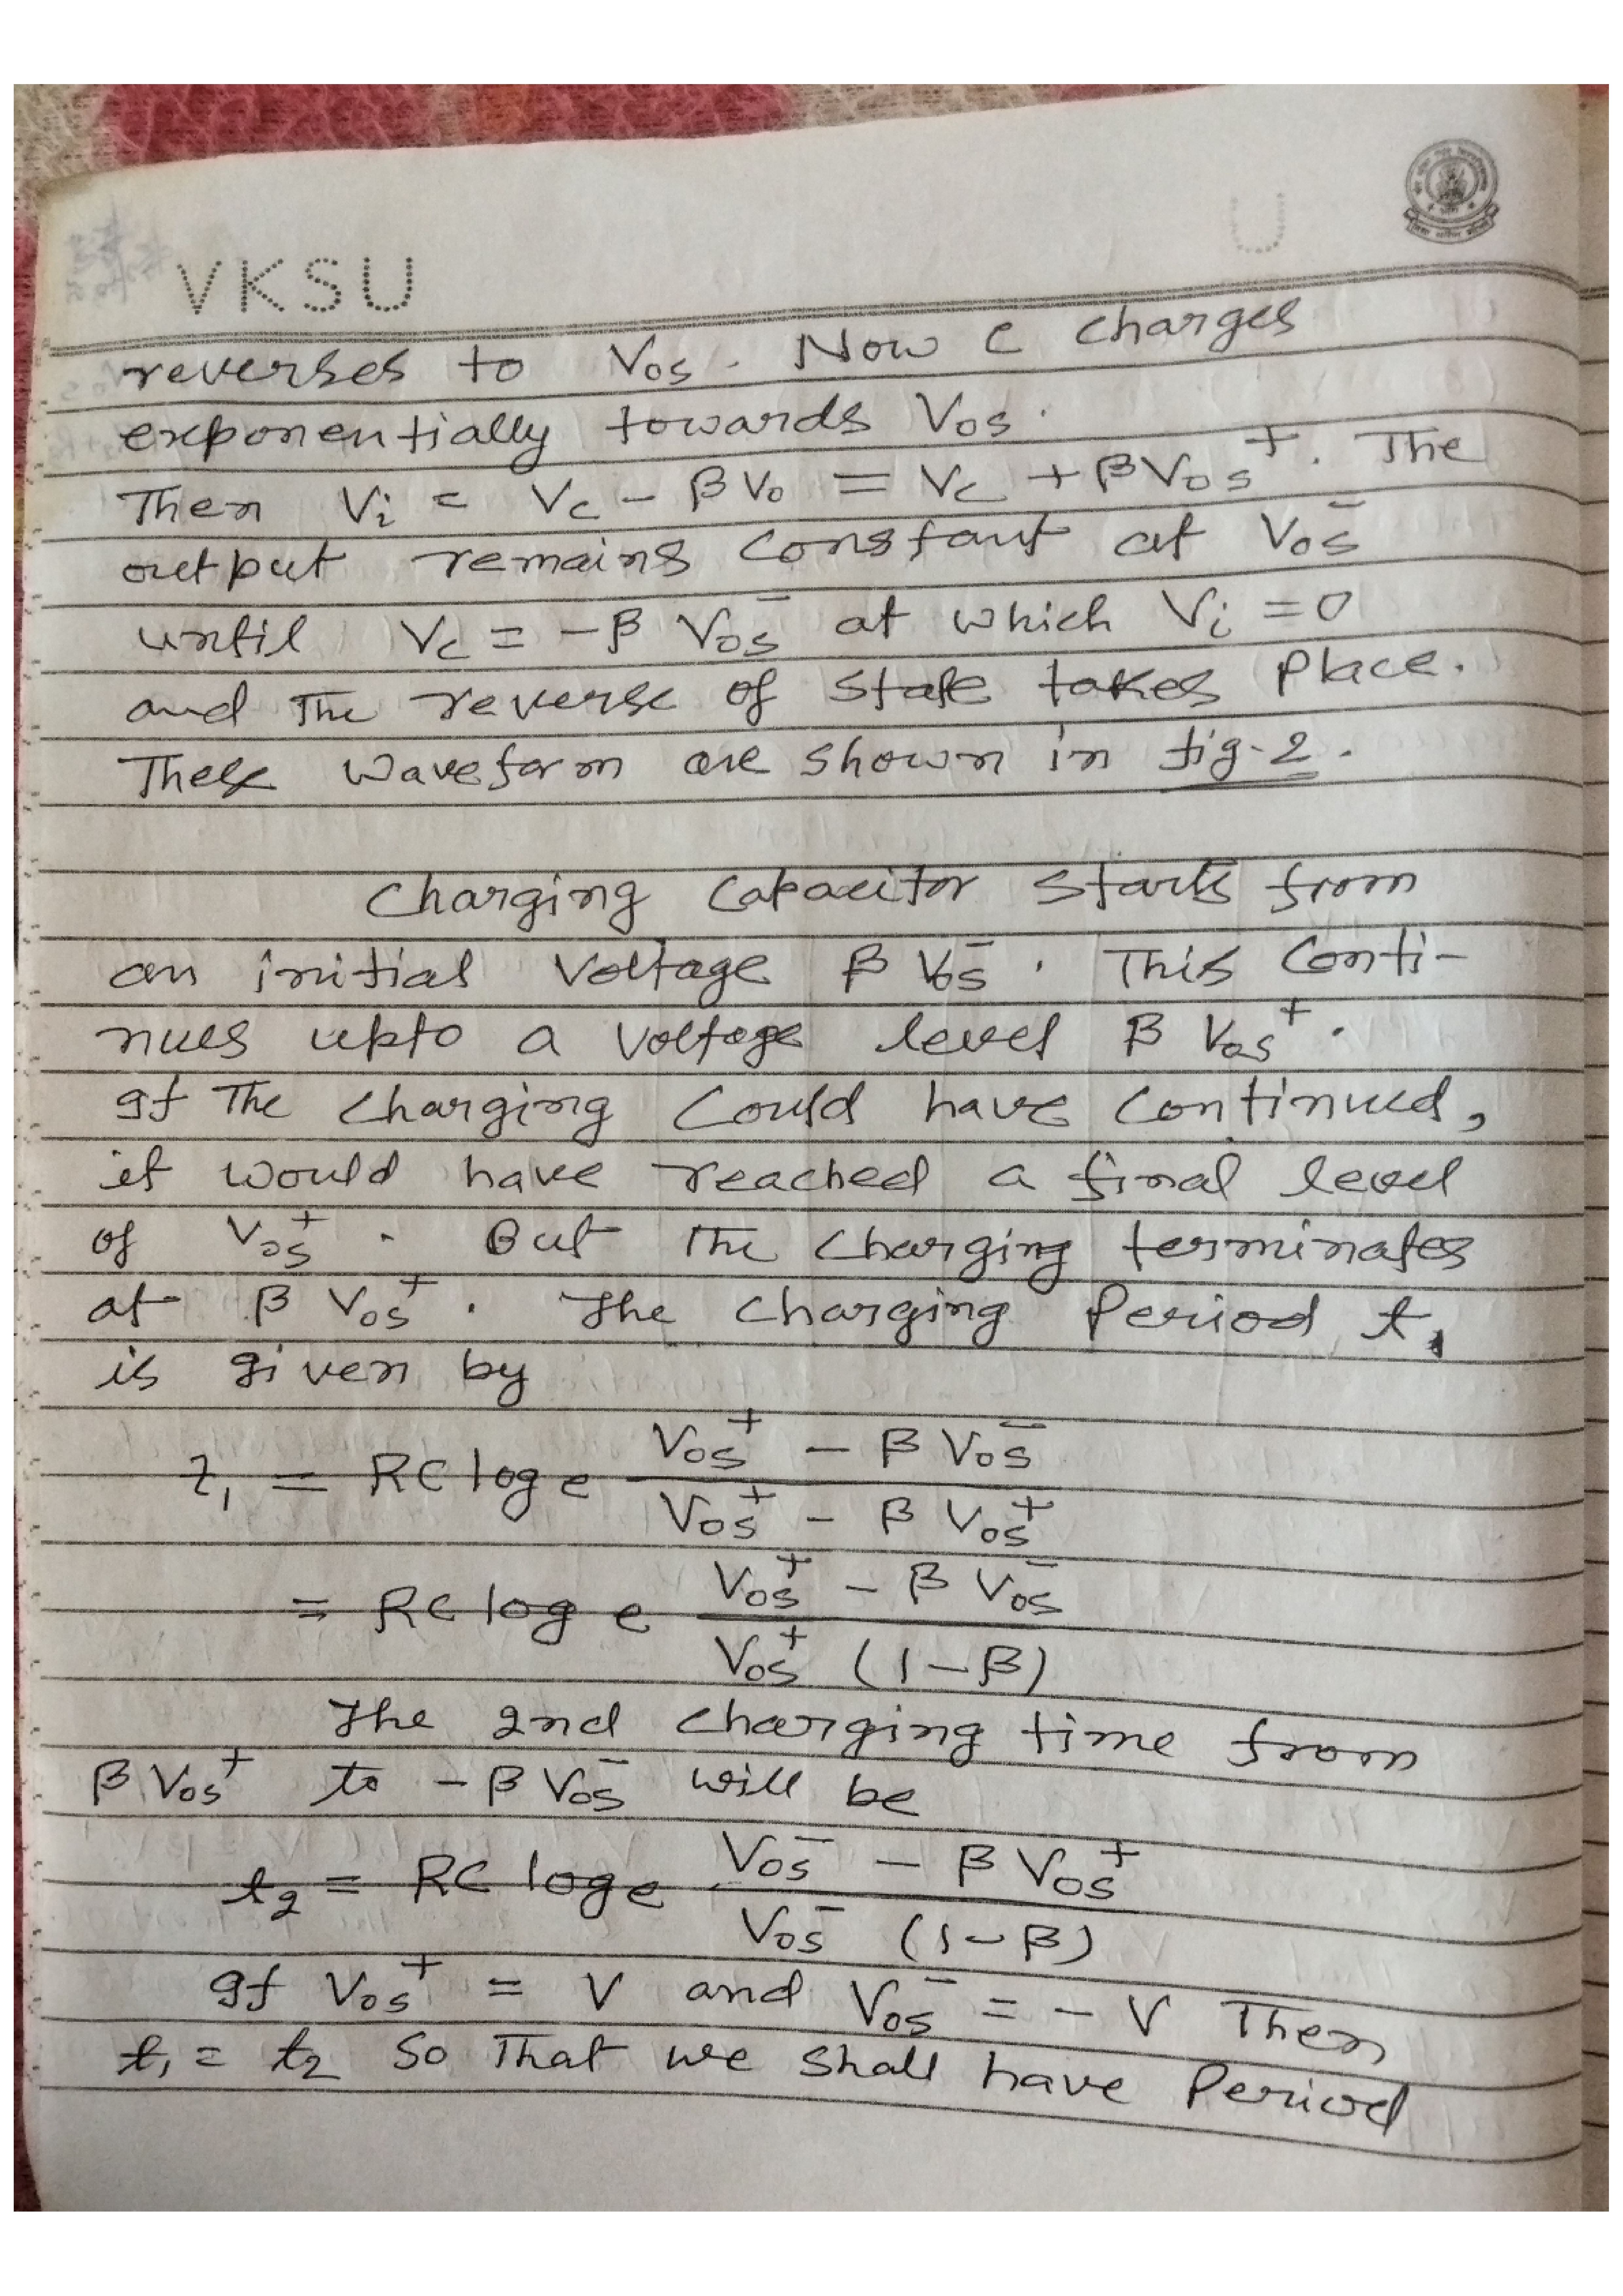 VKSU
U
reverses to Vos. Now C charges
exponentially towards Vos.
Then Vi = Vc - βVo = Vc + βVos⁺. The
output remains constant at Vos⁻
until Vc = -β Vos⁻ at which Vi = 0
and the reverse of state takes place.
These waveform are shown in fig-2.
Charging Capacitor starts from
an initial voltage β Vos⁻. This Conti-
nues upto a voltage level β Vos⁺.
If the charging could have continued,
it would have reached a final level
of Vos⁺. But the charging terminates
at β Vos⁺. The charging Period t₁
is given by
t₁ = RC log e (Vos⁺ - β Vos⁻) / (Vos⁺ - β Vos⁺)
= RC log e (Vos⁺ - β Vos⁻) / (Vos⁺ (1-β))
The 2nd charging time from
β Vos⁺ to -β Vos⁻ will be
t₂ = RC log e (Vos⁻ - β Vos⁺) / (Vos⁻ (1-β))
If Vos⁺ = V and Vos⁻ = -V Then
t₁ = t₂ So That we shall have Period